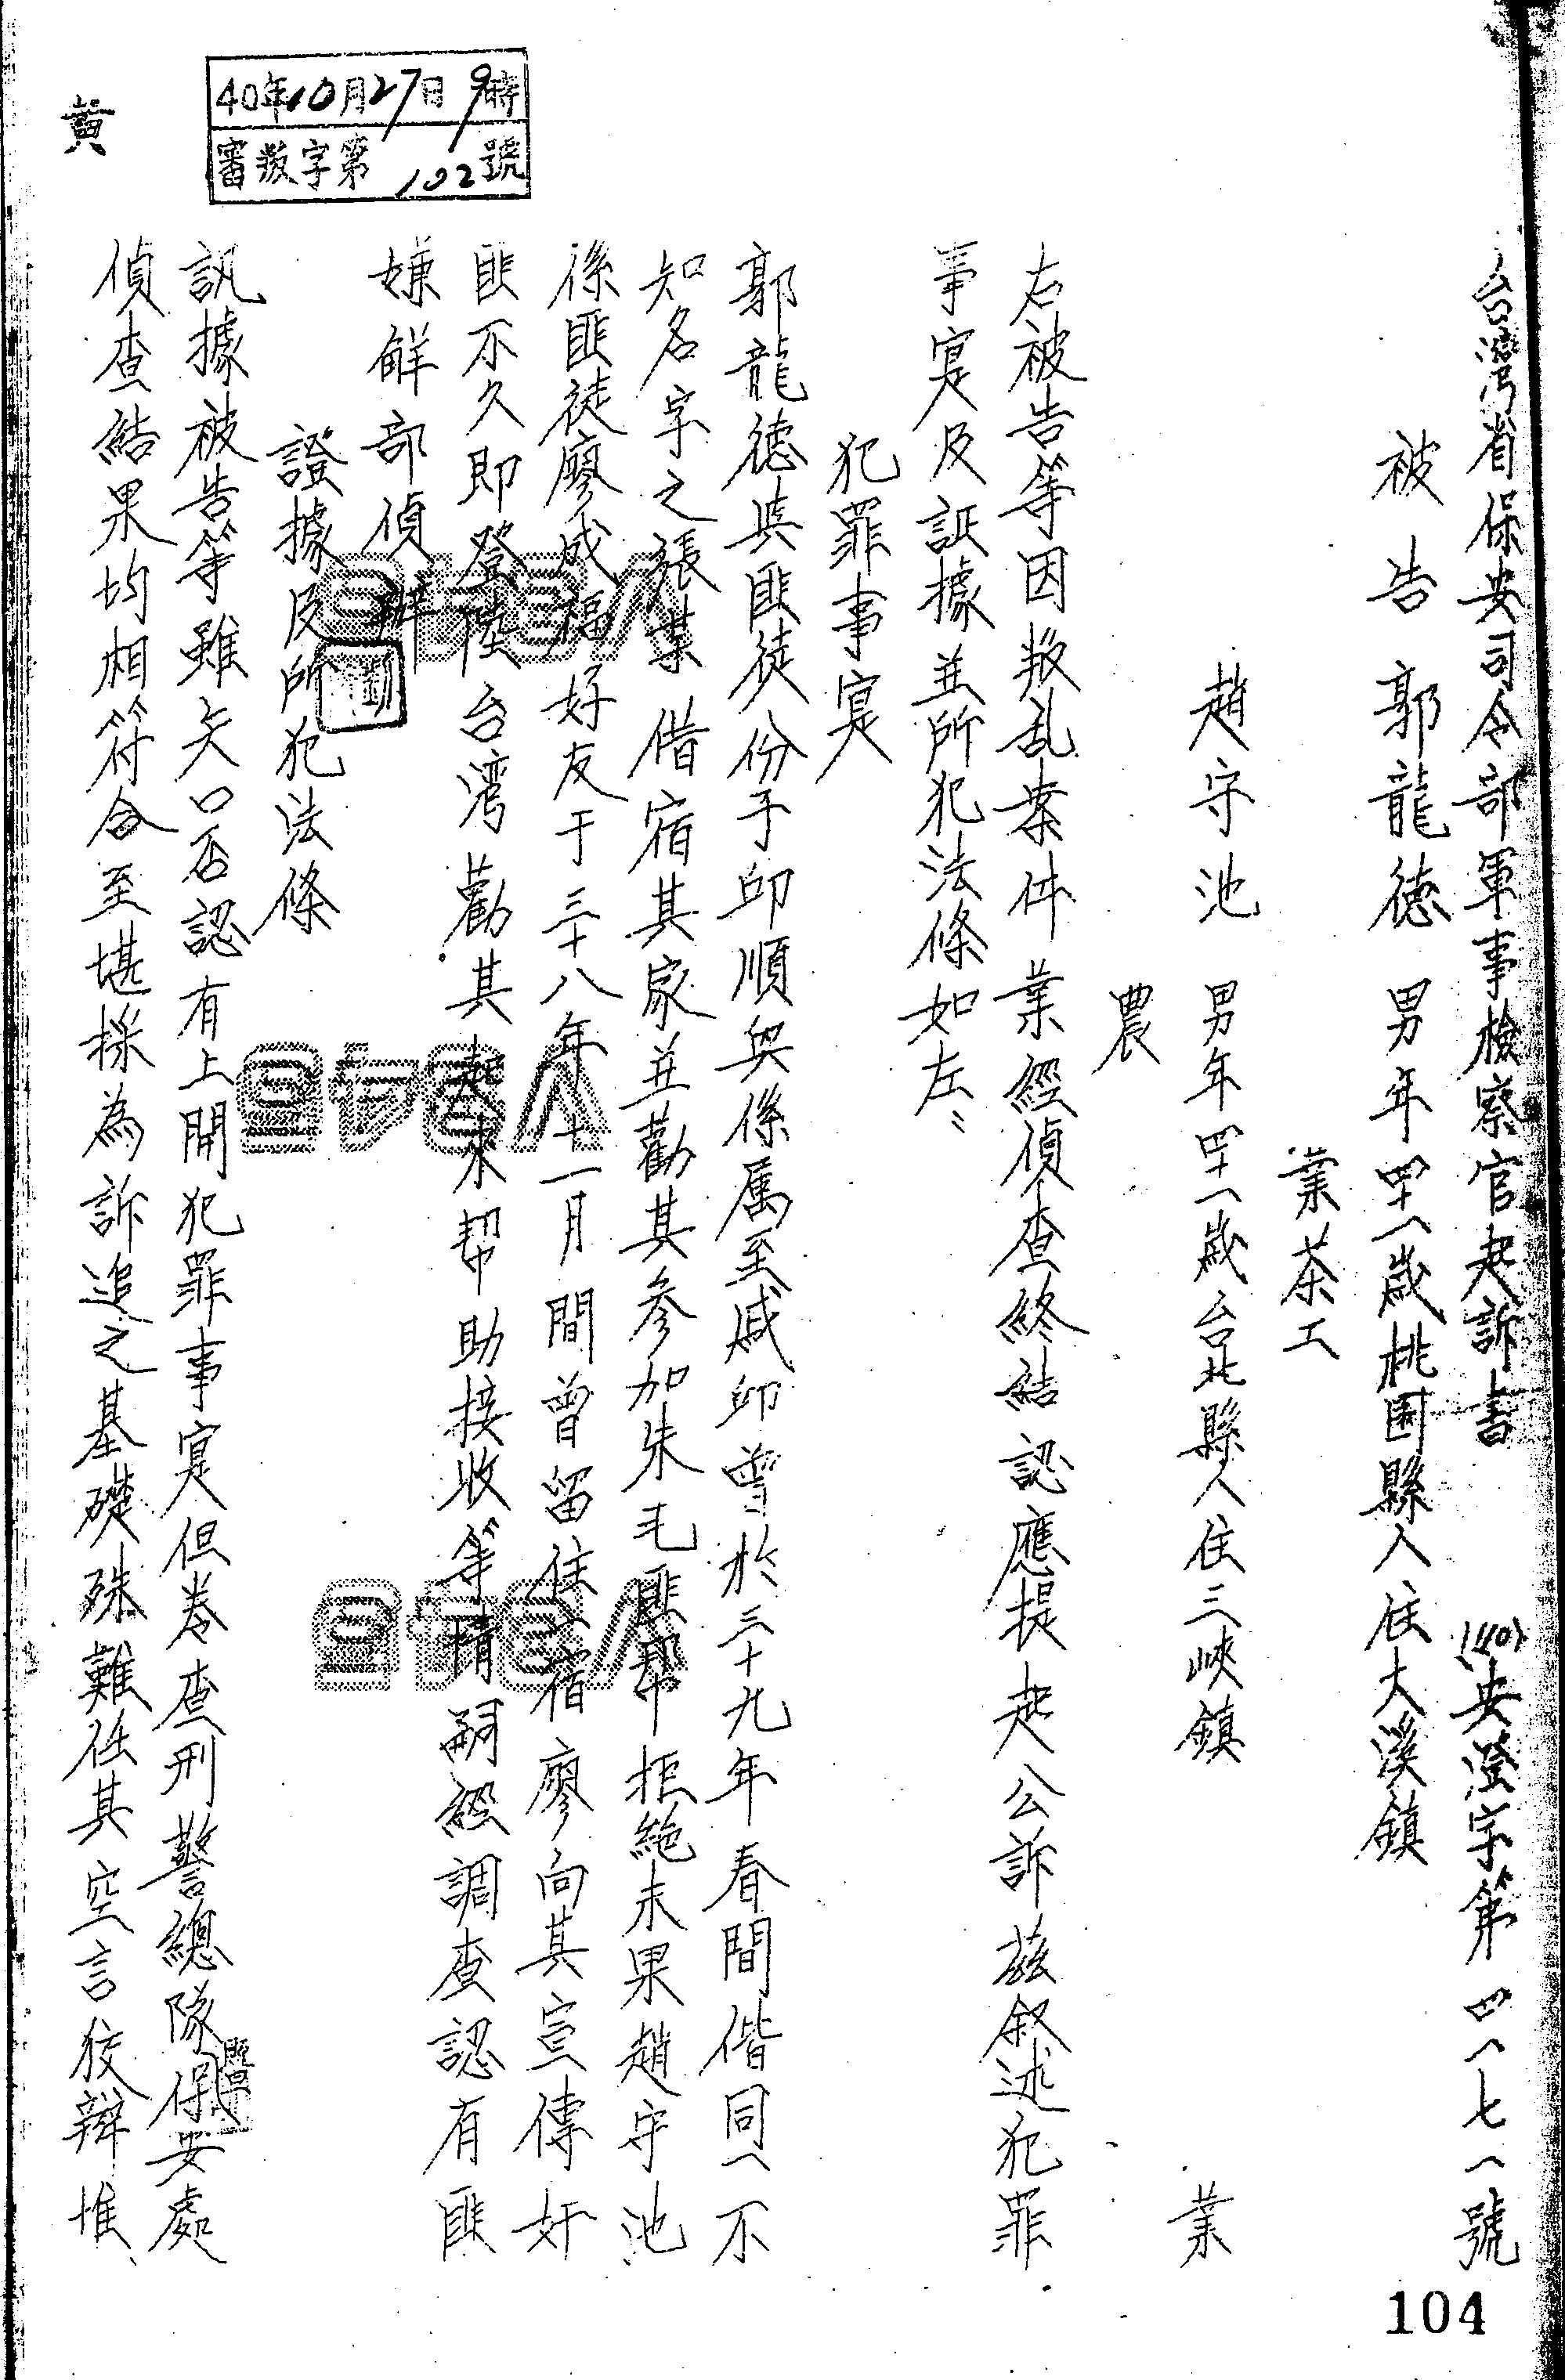 台灣省保安司令部軍事檢察官起訴書 (四〇)安澄字第四一七一號
被告 郭龍德 男年四十一歲桃園縣人住大溪鎮
業茶工
趙守池 男年四十一歲台北縣人住三峽鎮 業
農
右被告等因叛乱案件業經偵查終結認應提起公訴茲叙述犯罪
事実及証據並所犯法條如左:
犯罪事実
郭龍德與匪徒份子邱順與係属至戚邱曾於三十九年春間偕同一不
知名字之張某借宿其家並勸其参加朱毛匪帮拒絶未果趙守池
係匪徒廖成福好友于三十八年十一月間曾留住宿廖向其宣傳奸
匪不久即登陸台湾勸其起來帮助接收等情嗣經調查認有匪
嫌解部偵辦
證據及所犯法條
訊據被告等雖矢口否認有上開犯罪事実但卷查刑警總隊保安處
偵查結果均相符合至堪採為訴追之基礎殊難任其空言狡辯推
40年10月27日9時
審叛字第102號
黄
104